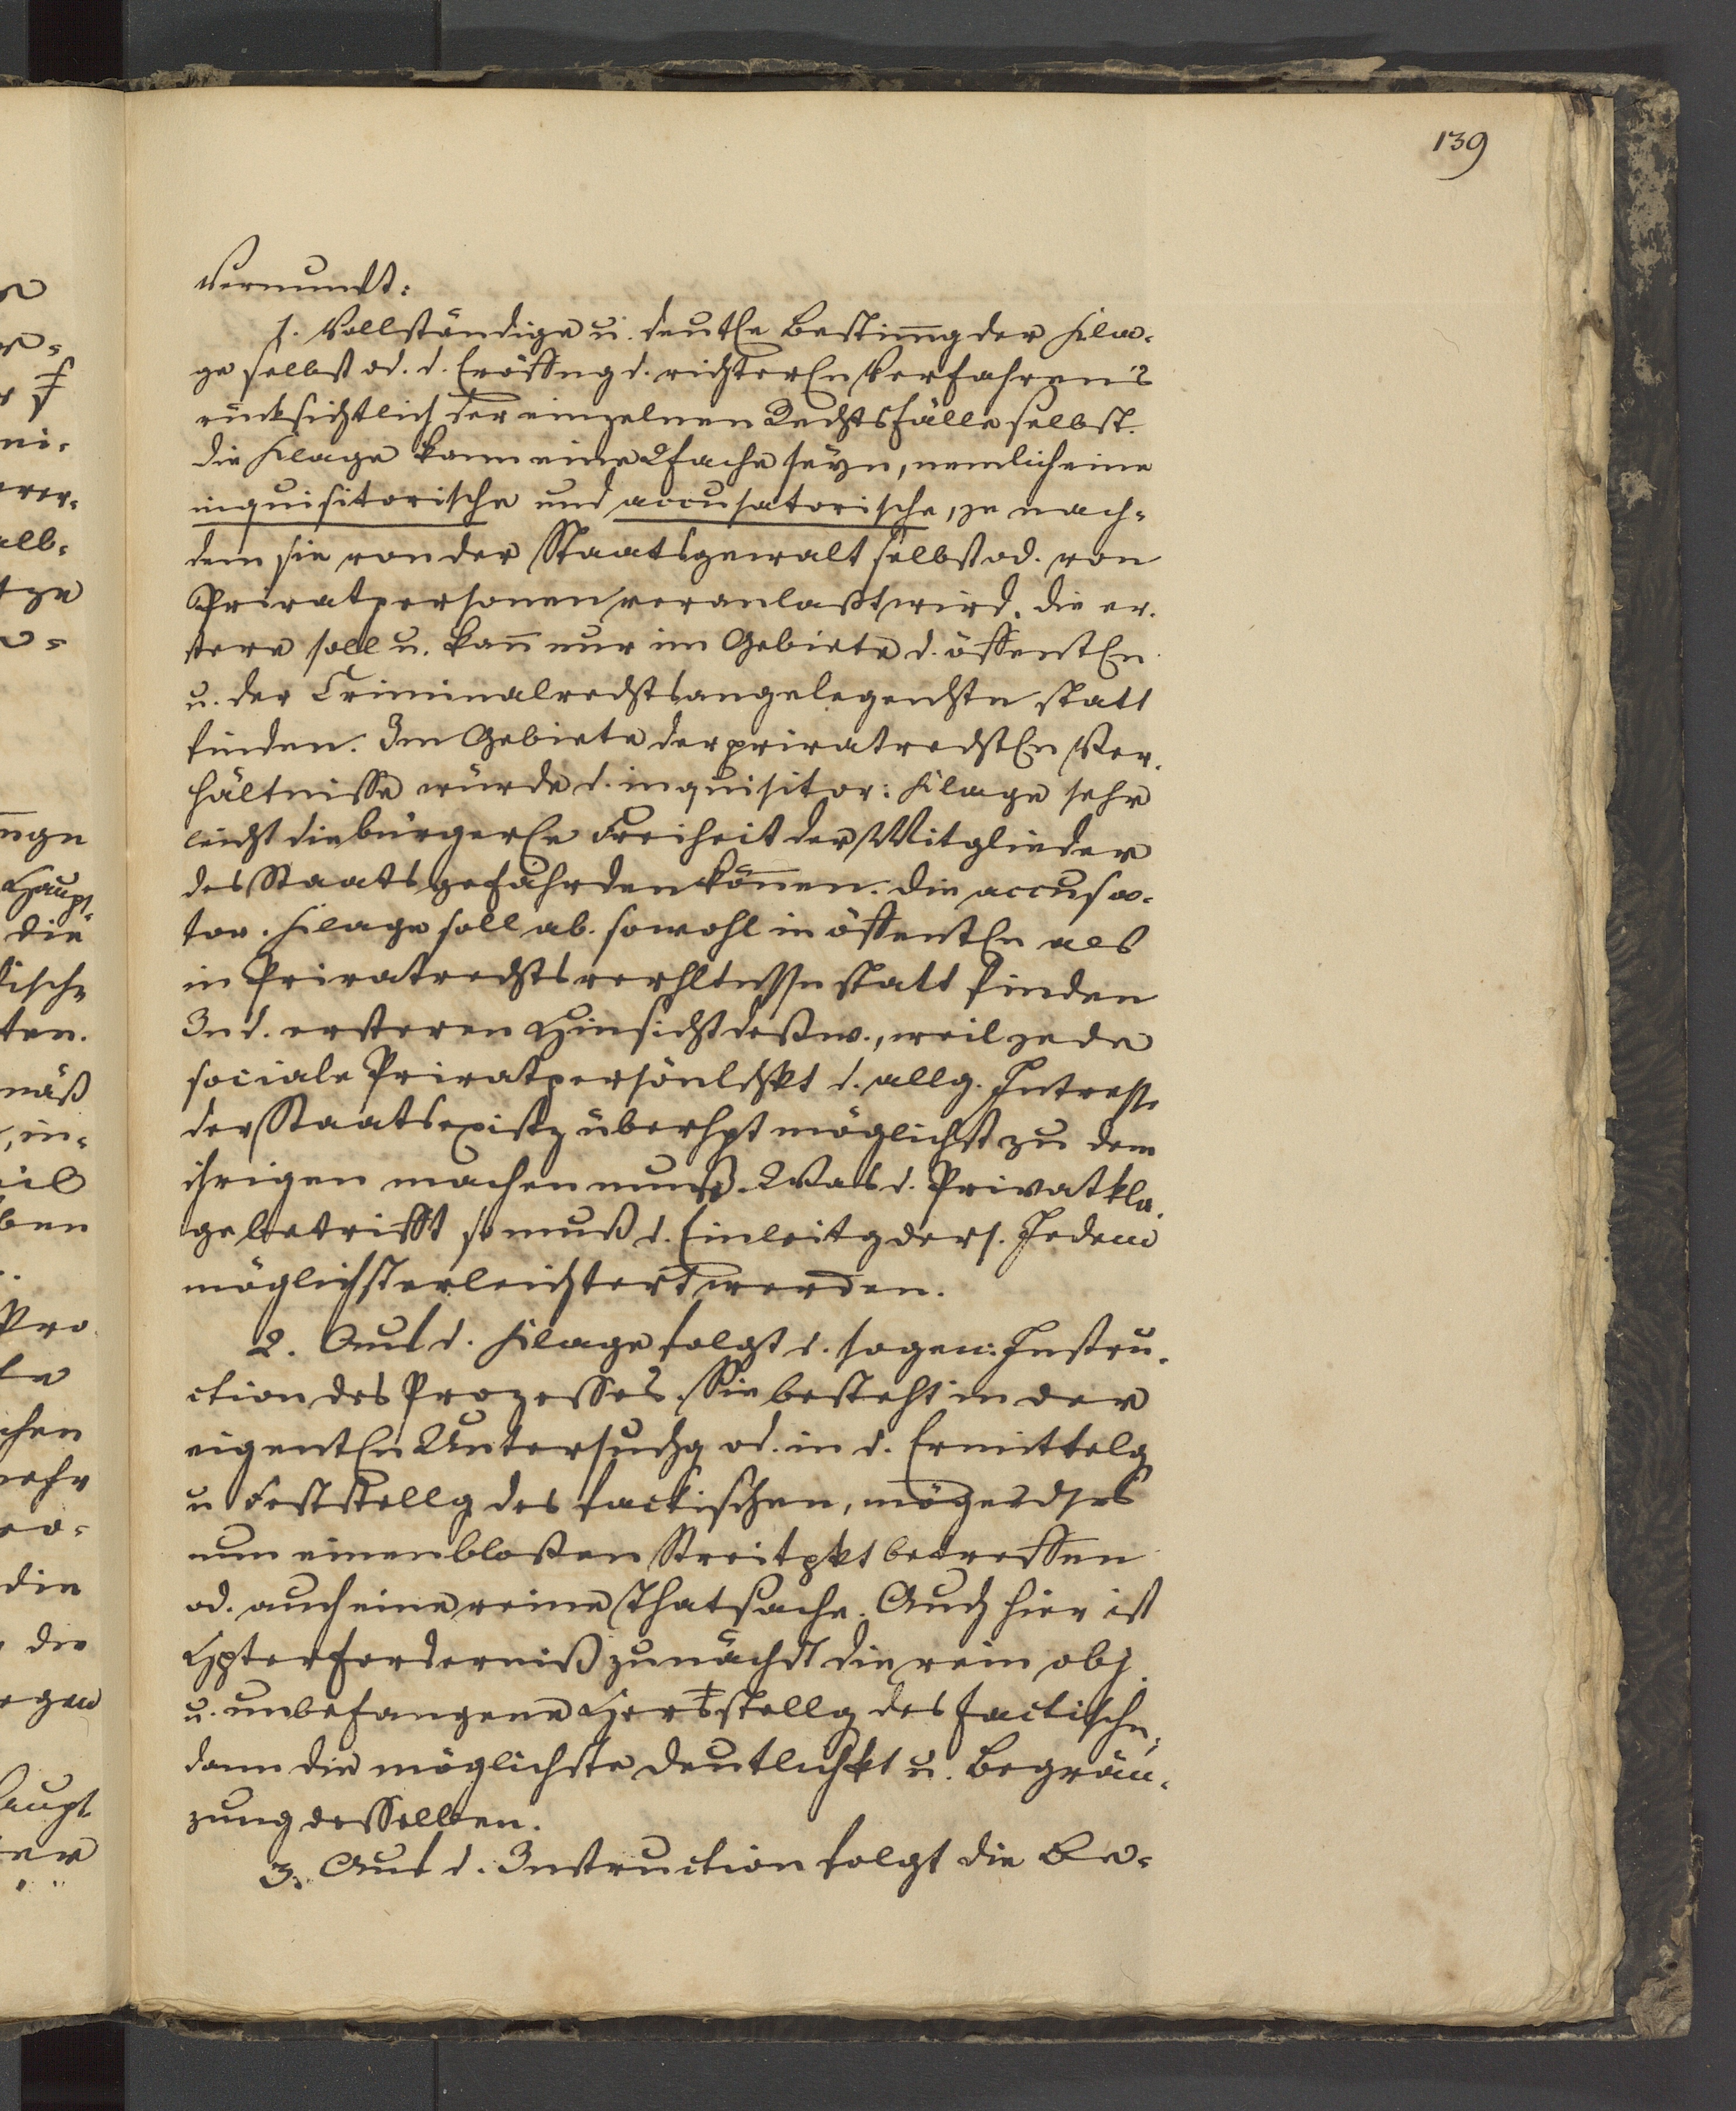 139
Vernunft:
1. Vollständige u. deutl. Bestim̄g der Kla-
ge selbst od. d. Eröffng d. richterln Verfahren's
rücksichtlich der einzelnen Rechtsfälle selbst.
Die Klage kann eine 2fache seyn, nemlich eine
inquisitorische und accusatorische, je nach-
dem sie von der Staatsgewalt selbst od. von
Privatpersonen veranlaßt wird. Die er-
stere soll u. kan̄ nur im Gebiete d. öffentln
u. der Criminalrechtsangelegenhtn statt
finden. Im Gebiete der privatrechtln Ver-
hältnisse würde d. inquisitor: Klage sehr
leicht die bürgerle Freiheit der Mitglieder
des Staats gefährden kön̄en. Die accusa-
tor. Klage soll ab. sowohl in öffentln als
in Privatrechtsverhltnssn statt finden
In d. ersteren Hinsicht deßw., weil jede
sociale Privatpersönlchkt d. allg. Intresse
der Staatsexistz überhpt möglichst zu dem
ihrigen machen muß. Was d. Privatkla-
ge betrifft so muß d. Einleitg ders. Jedem
möglichst erleichtert werden.
2. Auf d. Klage folgt d. sogen: Instru-
ction des Prozesses. Sie besteht in der
eigentln Untersuchg od. in d. Ermittelg
u Feststellg des factischen, möge dses
nun einen bloßen Streitpkt betreffen
od. auch eine reine Thatsache. Auch hier ist
Hpterforderniß zunächst die rein obj.
u. unbefangene Herstellg des factischn,
dann die möglichste Deutlichkt u. Begrän-
zung desselben.
3. Auf d. Instruction folgt die Be-